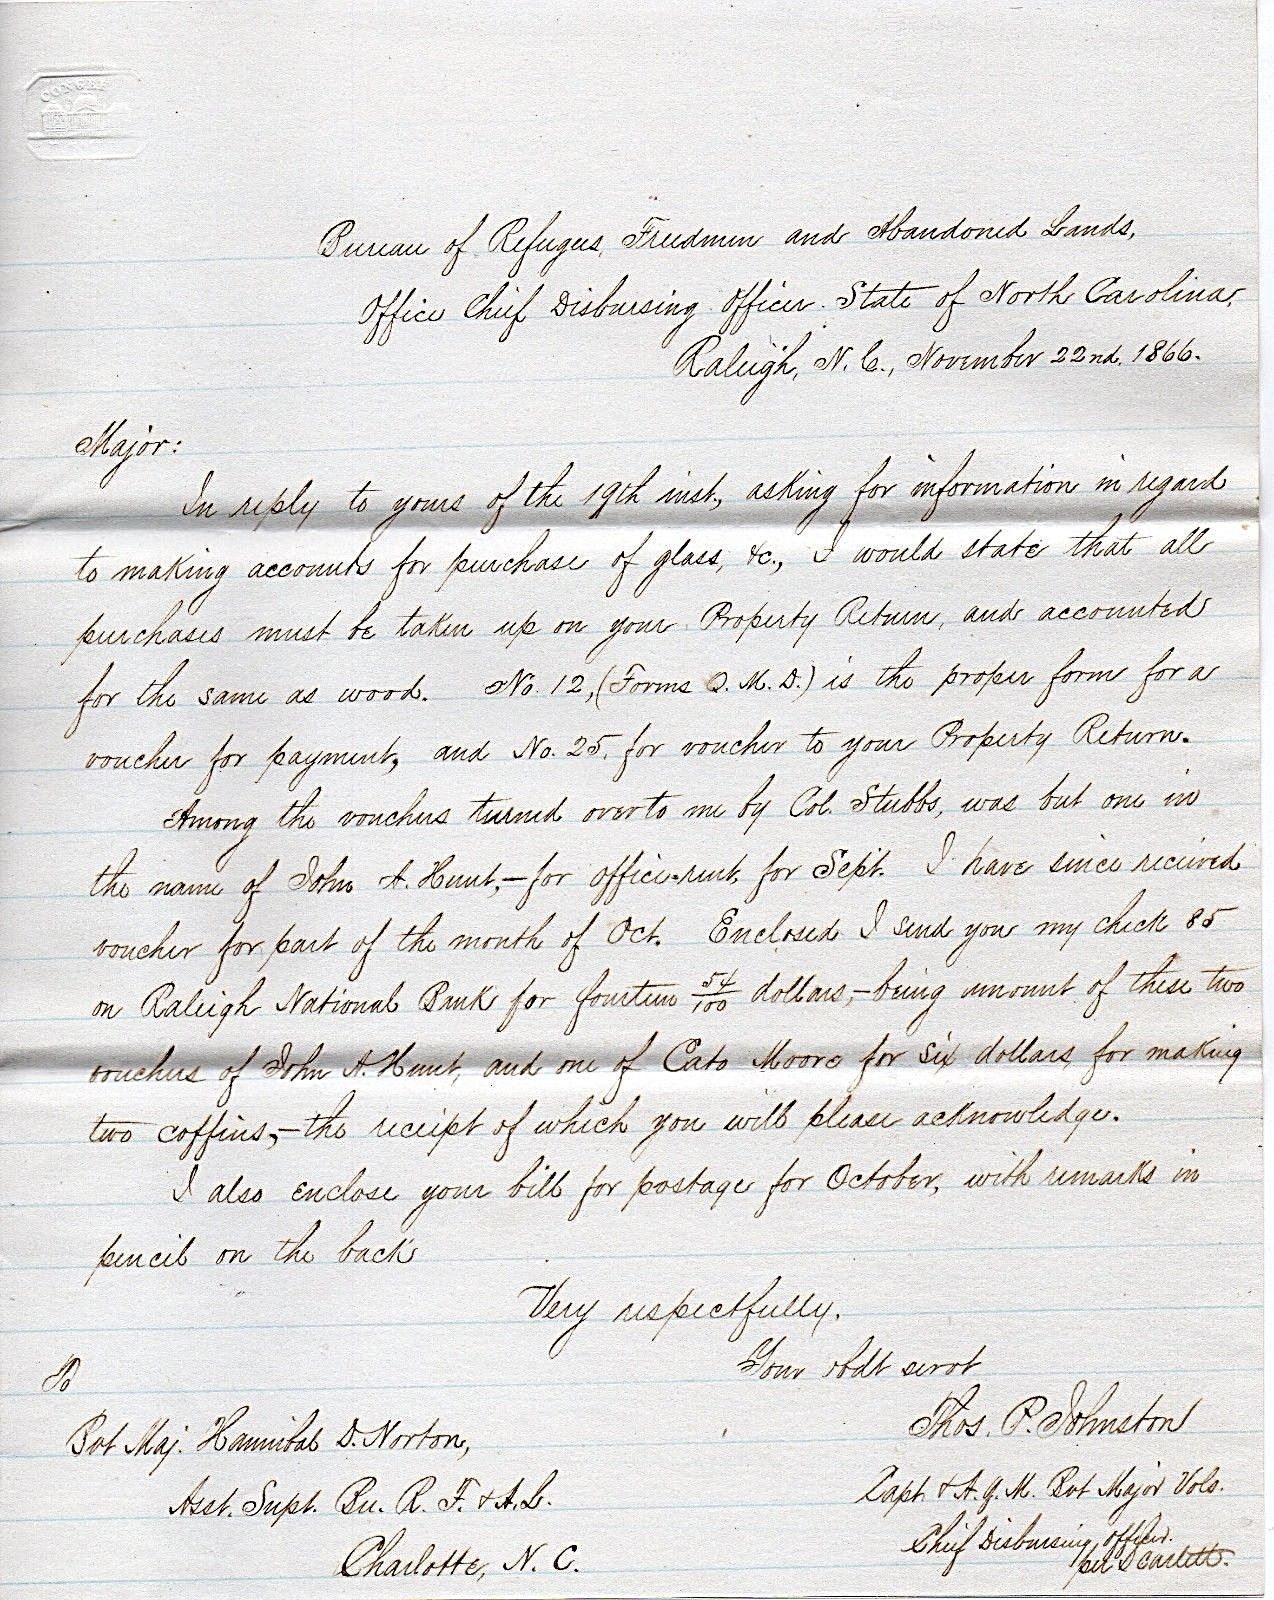 CONGR
Bureau of Refugees, Freedmen and Abandoned Lands,
Office Chief Disbursing Officer State of North Carolina,
Raleigh, N. C., November 22nd, 1866.
Major:
In reply to yours of the 19th inst., asking for information in regard
to making accounts for purchase of glass, &c., I would state that all
purchases must be taken up on your Property Return, and accounted
for the same as wood. No. 12, (Forms Q. M. D.) is the proper form for a
voucher for payment, and No. 25, for voucher to your Property Return.
Among the vouchers turned over to me by Col. Stubbs, was but one in
the name of John A. Hunt,—for office-rent, for Sept. I have since received
voucher for part of the month of Oct. Enclosed I send you my check 85
on Raleigh National Bank for fourteen 54/100 dollars,—being amount of these two
vouchers of John A. Hunt, and one of Cato Moore for six dollars, for making
two coffins,—the receipt of which you will please acknowledge.
I also enclose your bill for postage for October, with remarks in
pencil on the back
Very respectfully,
Your obdt servt
Thos. P. Johnston
Capt. & A.Q.M. Bvt Major Vols.
Chief Disbursing officer.
per
To
Bvt Maj. Hannibal D. Norton,
Asst. Supt. Bu. R. F. & A. L.
Charlotte, N. C.